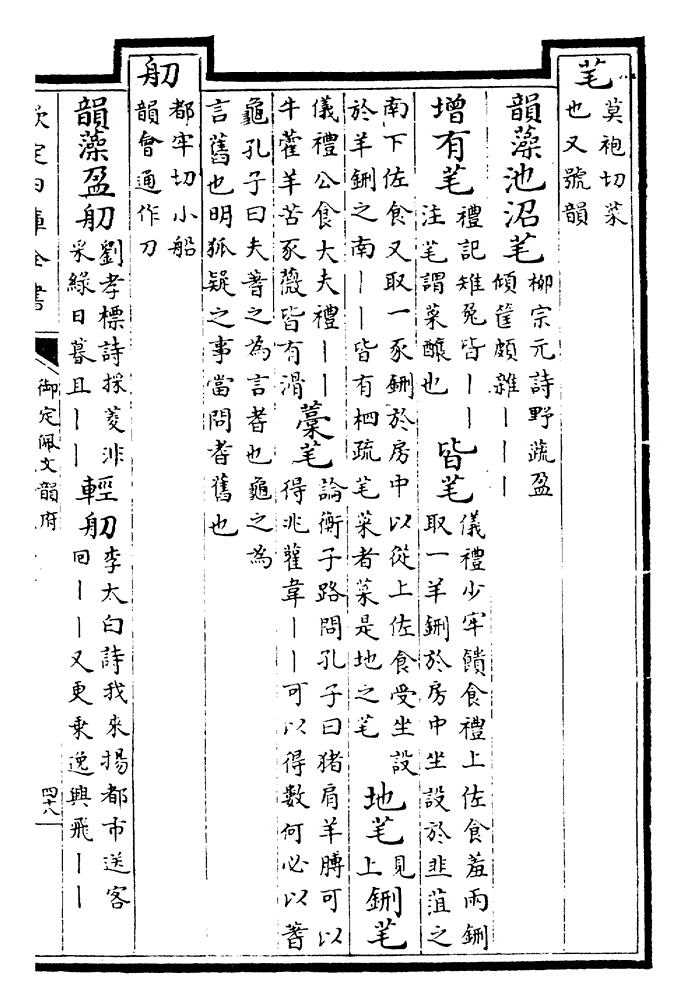 芼
莫袍切菜
也又號韻
韻藻池沼芼
柳宗元詩野蔬盈
傾筐頗雜丨丨丨
增有芼
禮記雉兔皆丨丨
注芼謂菜釀也
皆芼
儀禮少牢饋食禮上佐食羞兩鉶
取一羊鉶於房中坐設於韭菹之
南下佐食又取一豕鉶於房中以從上佐食受坐設
於羊鉶之南丨丨皆有柶疏芼菜者菜是地之芼
地芼
見
上
鉶芼
儀禮公食大夫禮丨丨
牛藿羊苦豕薇皆有滑
藁芼
論衡子路問孔子曰猪肩羊膊可以
得兆雚葦丨丨可以得數何必以蓍
龜孔子曰夫蓍之為言耆也龜之為
言舊也明狐疑之事當問耆舊也
舠
都牢切小船
韻會通作刀
韻藻盈舠
劉孝標詩採菱渉
采綠日暮且丨丨
輕舠
李太白詩我來揚都市送客
回丨丨又更乗逸興飛丨丨
欽定四庫全書
御定佩文韻府
四十八